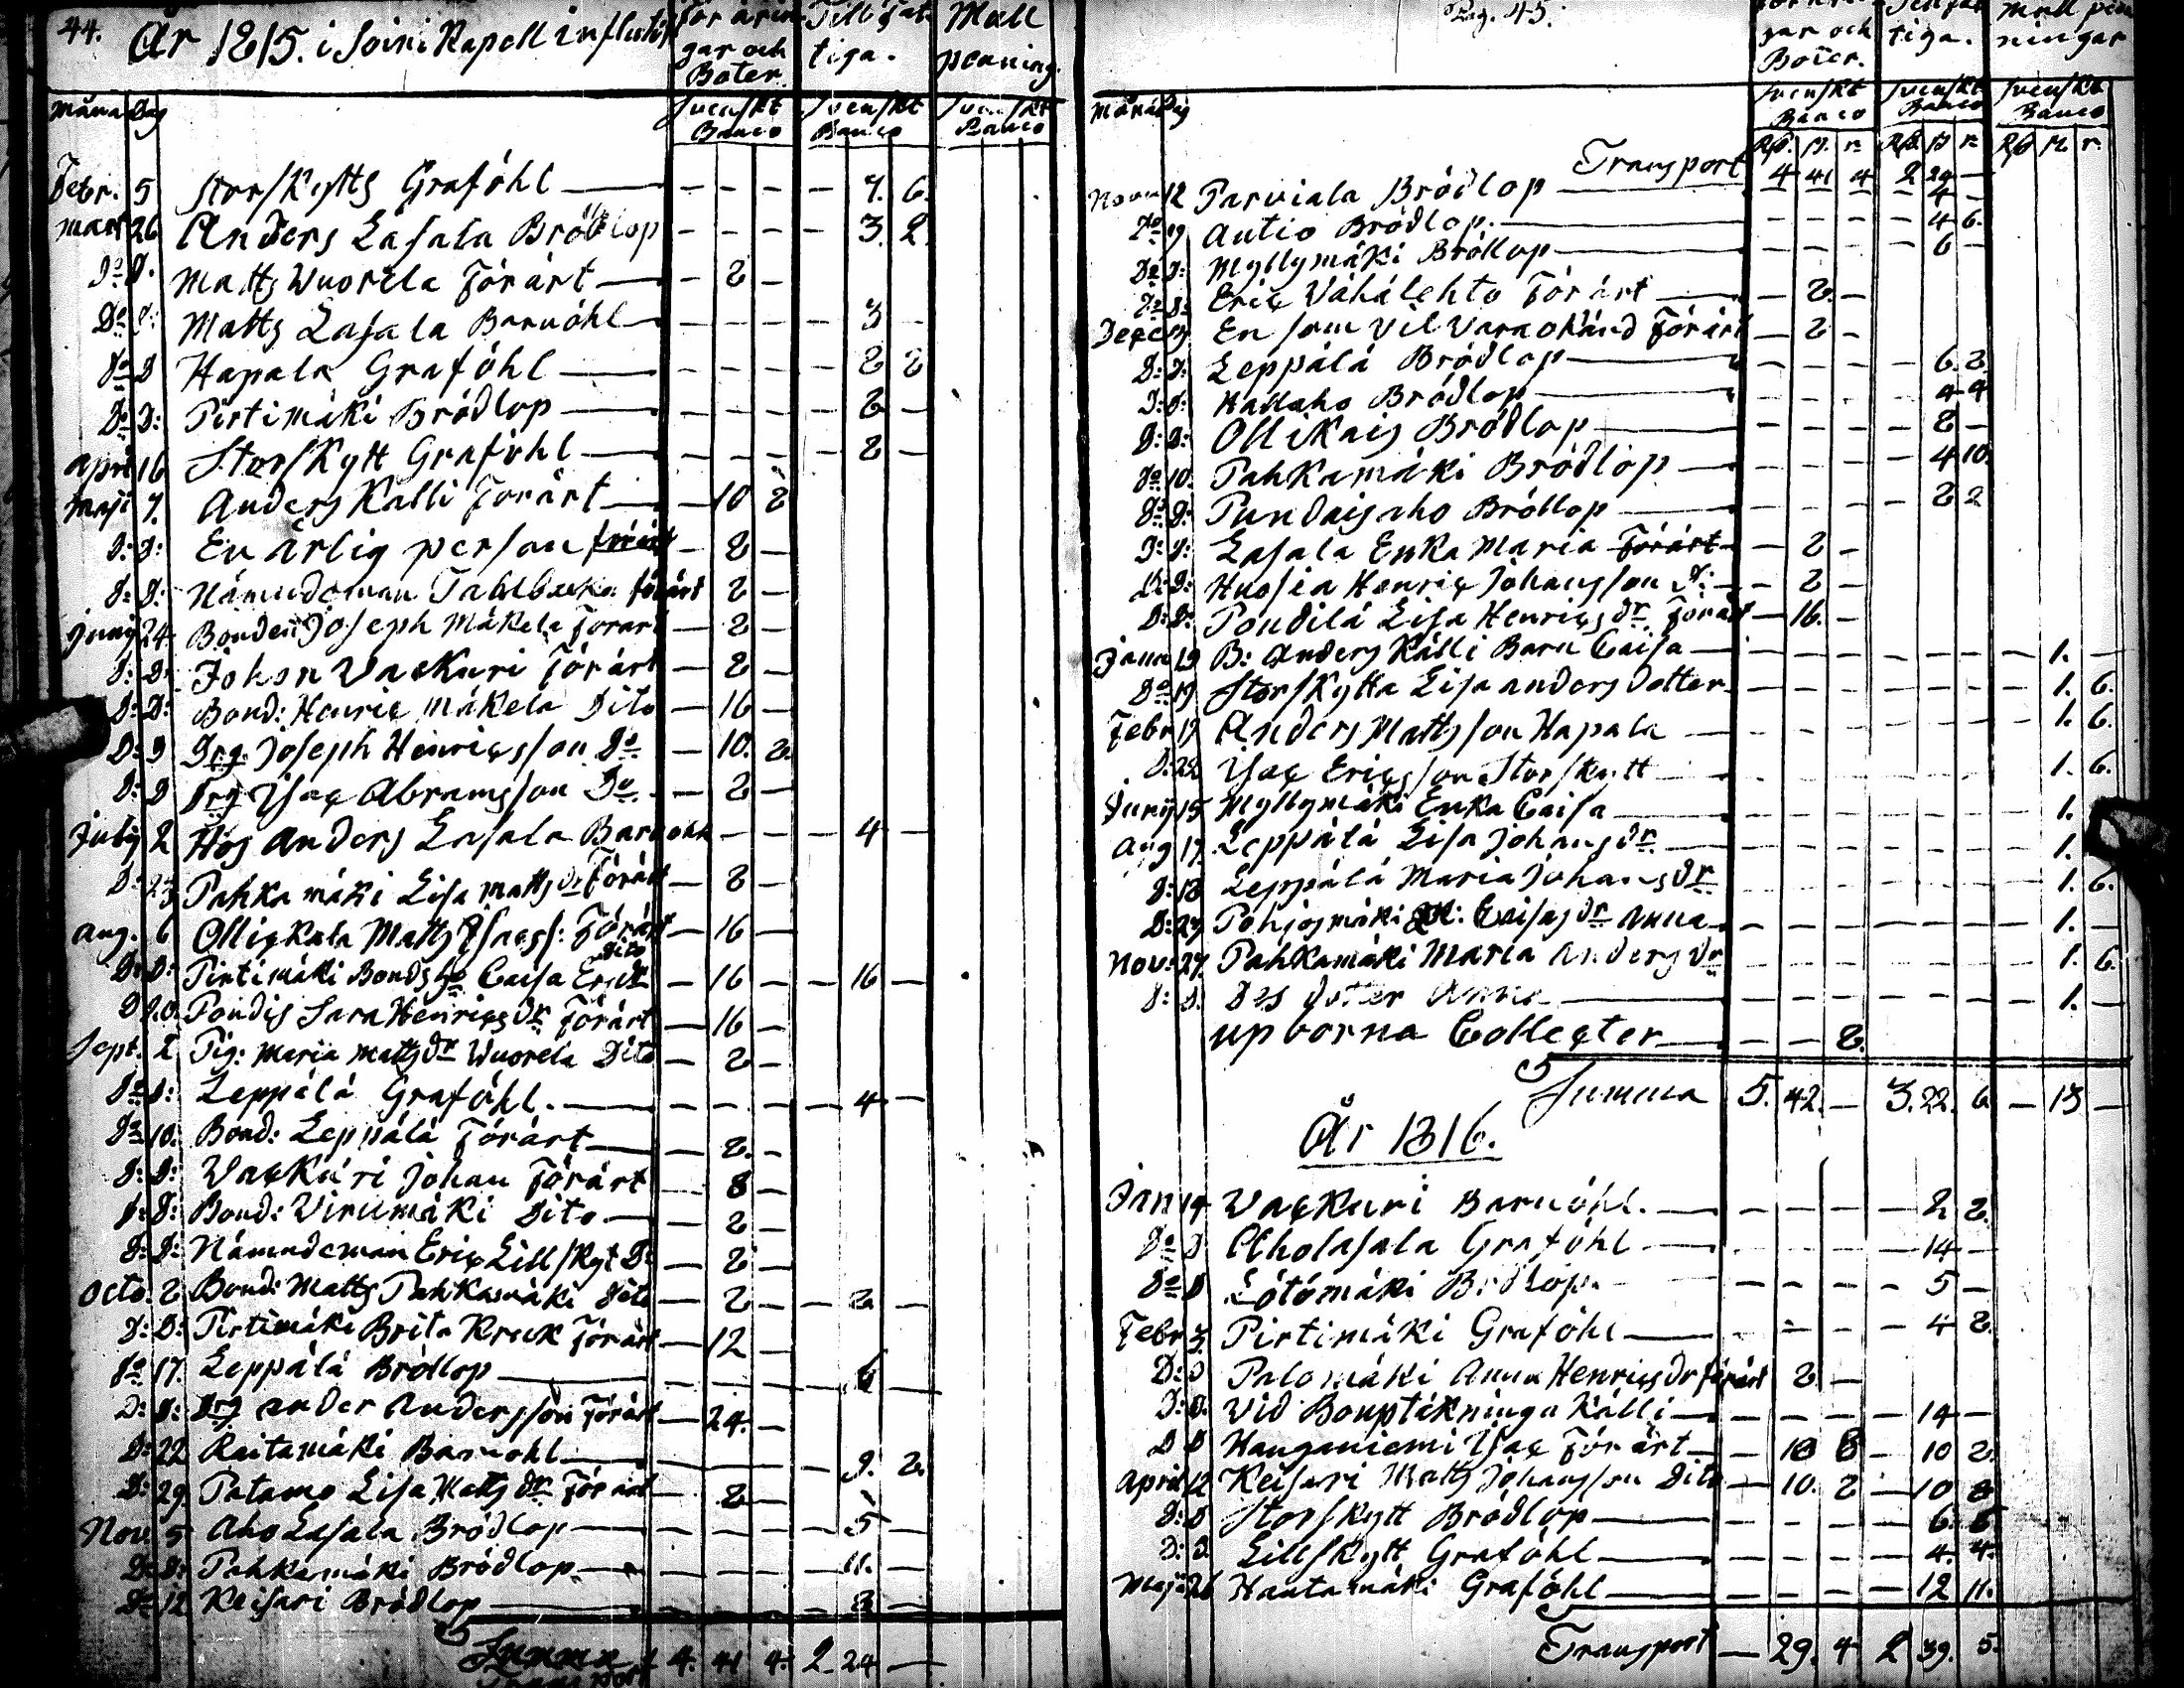 44. År 1815. i Soini Kapell influtit
Föräringar och Böter. Till Fattiga. Mull penning.
Måna Dag Svenskt Banco Svenskt Banco Svenskt Banco
Febr. 5 Storskytts Graföhl — — — — — 7. 6.
Mart 26 Anders Lasala Bröllop — — — — 3. 2.
Do D. Matts Wuorela Förärt — — 2 —
Do D: Matts Lasala Barnöhl — — — — 3 —
Do D Hapala Graföhl — — — — — 2 2
Do D: Pirtimäki Brödlop — — — — — 2 —
April 16 Storskytt Graföhl — — — — — 2 —
Maji 7. Anders Källi Förärt — — 10 2
D: D: En ärlig person förärt — 2 —
D: D: Nämndeman förärt 2 —
Junij 24. Bonden Joseph Mäkelä Förärt — 2 —
D: D: Johan Vackuri Förärt — 2 —
D: D: Bond: Henric Mäkelä Dito — 16 —
D: D Drg. Joseph Henricsson Do — 10. 2.
D: D Drg Isac Abramsson Do — 2 —
July 2 Hos Anders Lasala Barnöhl — — — 4 —
D: 23 Pahkamäki Lisa Matts Dr Förärt — 2 —
Aug. 6 Ollickala Matts Isacss: Förärt — 16 —
D: D: Pirtimäki Bonds Caisa Dito — 16 — — 16 —
D 20. Pondis Sara Henricsdr Förärt — 16 —
Sept. 2 Pig: Maria Mattsdr Wuorela Dito — 2 —
Do D: Leppälä Graföhl. — — — — — 4 —
Do 10. Bond: Leppälä Förärt — — 2. —
D: D: Vackuri Johan Förärt 8 —
D: D: Bond: Virumäki Dito — 2 —
D: D: Nämndeman Eric Lillskyt Do — 2 —
Octo. 2 Bond: Matts Pahkamäki Dito — 2 — — 2 —
D: D: Pirtimäki Brita Kruk Förärt — 12 —
Do 17. Leppälä Bröllop — — — — — 6 —
D: D: Drg Ander Andersson Förärt — 24. —
D: 22 Raitamäki Barnöhl — — — — — 9. 2.
D: 29. Patamo Lisa Mattsdr Förärt — 2 —
Nov. 5 Aho Lasala Brödlop — — — — — 5 —
D: D: Pahkamäki Brödlop — — — — — 11. —
Do 12 Keisari Brödlop — — — — — 3 —
Summa 4. 41 4. 2 24 —
Pag. 45.
gar och Böter. Till Fattiga. Mull penningar
Månad Dag Svenskt Banco Svenskt Banco Svenskt Banco
Transport 4 41 4 2 24 —
Novm 12 Parviala Brödlop — 4 —
Do 19 Autio Brödlop. — — — — 4 6.
Do D: Myllymäki Bröllop — — — — 6 —
Do D: Eric Vähälehto Förärt — — 2. —
Dece 3 En som vil vara okänd Förärt — 2 —
D: D: Leppälä Brödlop — — — — — 6. 2.
D: D: Hallaho Brödlop — — — — — 4 4
D: D: Ollikais Brödlop — — — — — 2 —
Do 10. Pahkamäki Brödlop — — — — 4 10.
Do D: Pundaisaho Bröllop — — — — — 2 2
D: D: Lasala Enka Maria Förärt — — 2 —
D: D: Huosia Henric Johansson D: — — 2 —
D: D: Pondilä Lisa Henricsdr Förärt — 16. —
Janu 19 B: Anders Källi Barn Caisa — 1. —
Do 19 Storskytta Lisa Anders Dotter — 1. 6.
Febr 17 Anders Mattsson Hapala — 1. 6.
D: 22 Isac Ericsson Storskytt 1. 6.
Junij 15 Myllymäki Enka Caisa — 1.
Aug 17. Leppälä Lisa Johansdr — 1.
D: 18 Leppälä Maria Johansdr 1. 6.
D: 27 Pohjosmäki Anna — 1. —
Nov: 27. Pahkamäki Maria Anders dr 1. 6.
D: D. Des dotter Anna — 1. —
upborna Collecter — — 2.
Summa 5. 42. — 3. 22. 6 — 13 —
År 1816.
Jan 14 Vackuri Barnöhl. — — — — — 2 2.
Do D Aholasala Graföhl — 14 —
Do D Lötömäki Brödlop. — — — — 5 —
Febr 3. Pirtimäki Graföhl — — — — 4 2.
D: D Palomäki Anna Henricsdr förärt 2 —
D: D. Vid Bouptäkninga Källi — — — — — 14 —
D D Hanganiemi Isac Förärt — 10 8 — 10 2.
April 12 Keisari Matts Johansson Dito — 10. 2 — 10 2
D: D Storskytt Brödlop — — — — — 6.
D: D. Lillskytt Graföhl — — — — — 4. 4.
Maji 26 Hautamäki Graföhl — — — — — 12 11.
Transport — 29. 4 2 39. 5.